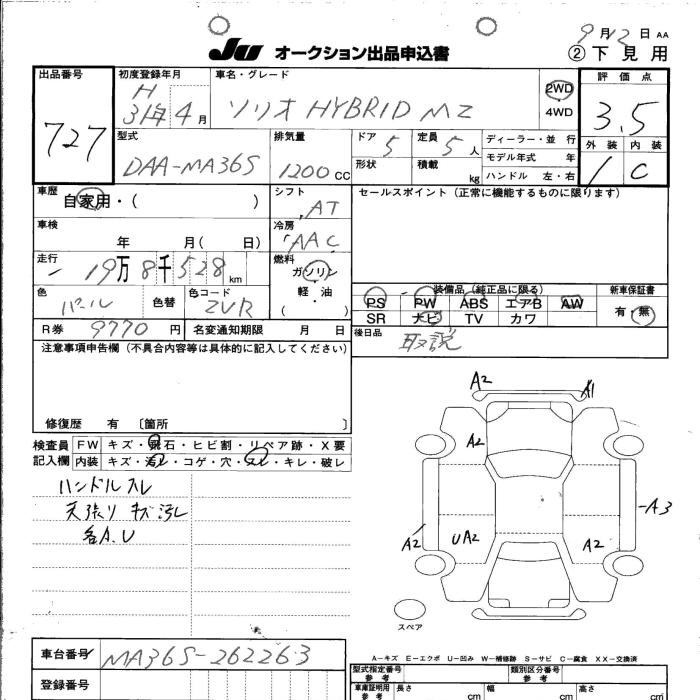 9月12日 AA
JU オークション出品申込書 ②下見用
出品番号 727
初度登録年月 H 31年 4月
車名・グレード ソリオ HYBRID MZ
2WD
4WD
評価点 3.5
外装 内装
1 C
型式 DAA-MA36S
排気量 1200 CC
ドア 5
形状
定員 5人
積載 kg
ディーラー・並行
モデル年式 年
ハンドル 左・右
車歴 自家用・( )
シフト AT
セールスポイント(正常に機能するものに限ります)
車検 年 月( 日)
冷房 AAC
走行 19万8千528km
燃料 ガソリン
軽・油
( )
色 パール 色替
色コード ZVR
装備品(純正品に限る)
PS PW ABS エアB AW
SR ナビ TV カワ
新車保証書
有・無
R券 9770円
名変通知期限 月 日
後日品 取説
注意事項申告欄(不具合内容等は具体的に記入してください)
修復歴 有 〔箇所 〕
検査員記入欄
FW キズ・飛石・ヒビ割・リペア跡・X要
内装 キズ・汚レ・コゲ・穴・スレ・キレ・破レ
ハンドルスレ
天張り キズ汚レ
各A.U
A2
A1
A2
A3
A2
UA2
A2
スペア
A-キズ E-エクボ U-凹み W-補修跡 S-サビ C-腐食 XX-交換済
車台番号 MA36S-262263
登録番号
型式指定番号
参考
類別区分番号
参考
車庫証明用
参考
長さ cm
幅 cm
高さ cm